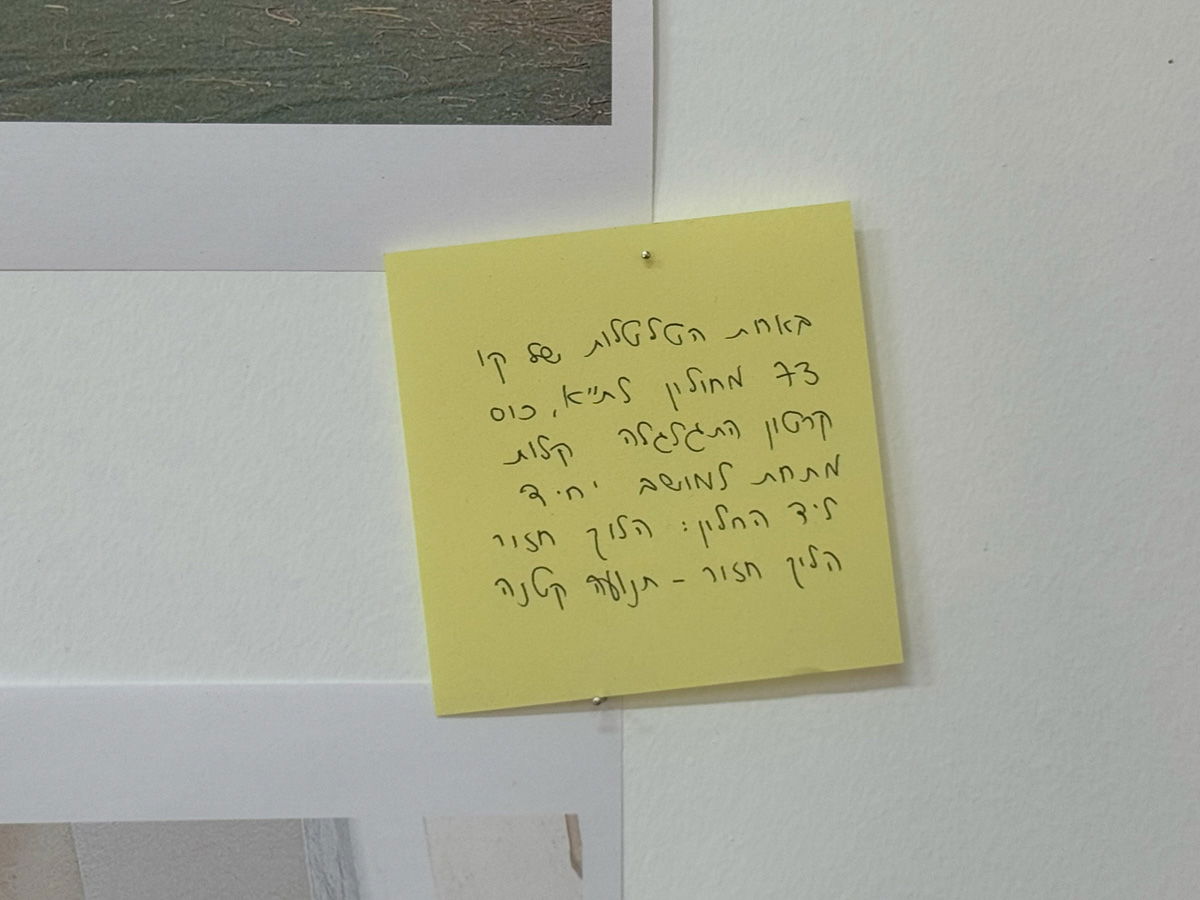 באחת הטלטלות של קו
73 מחולון לת״א, כוס
קרטון התגלגלה קלות
מתחת למושב יחיד
ליד החלון: הלוך חזור
הלוך חזור - תנועה קטנה